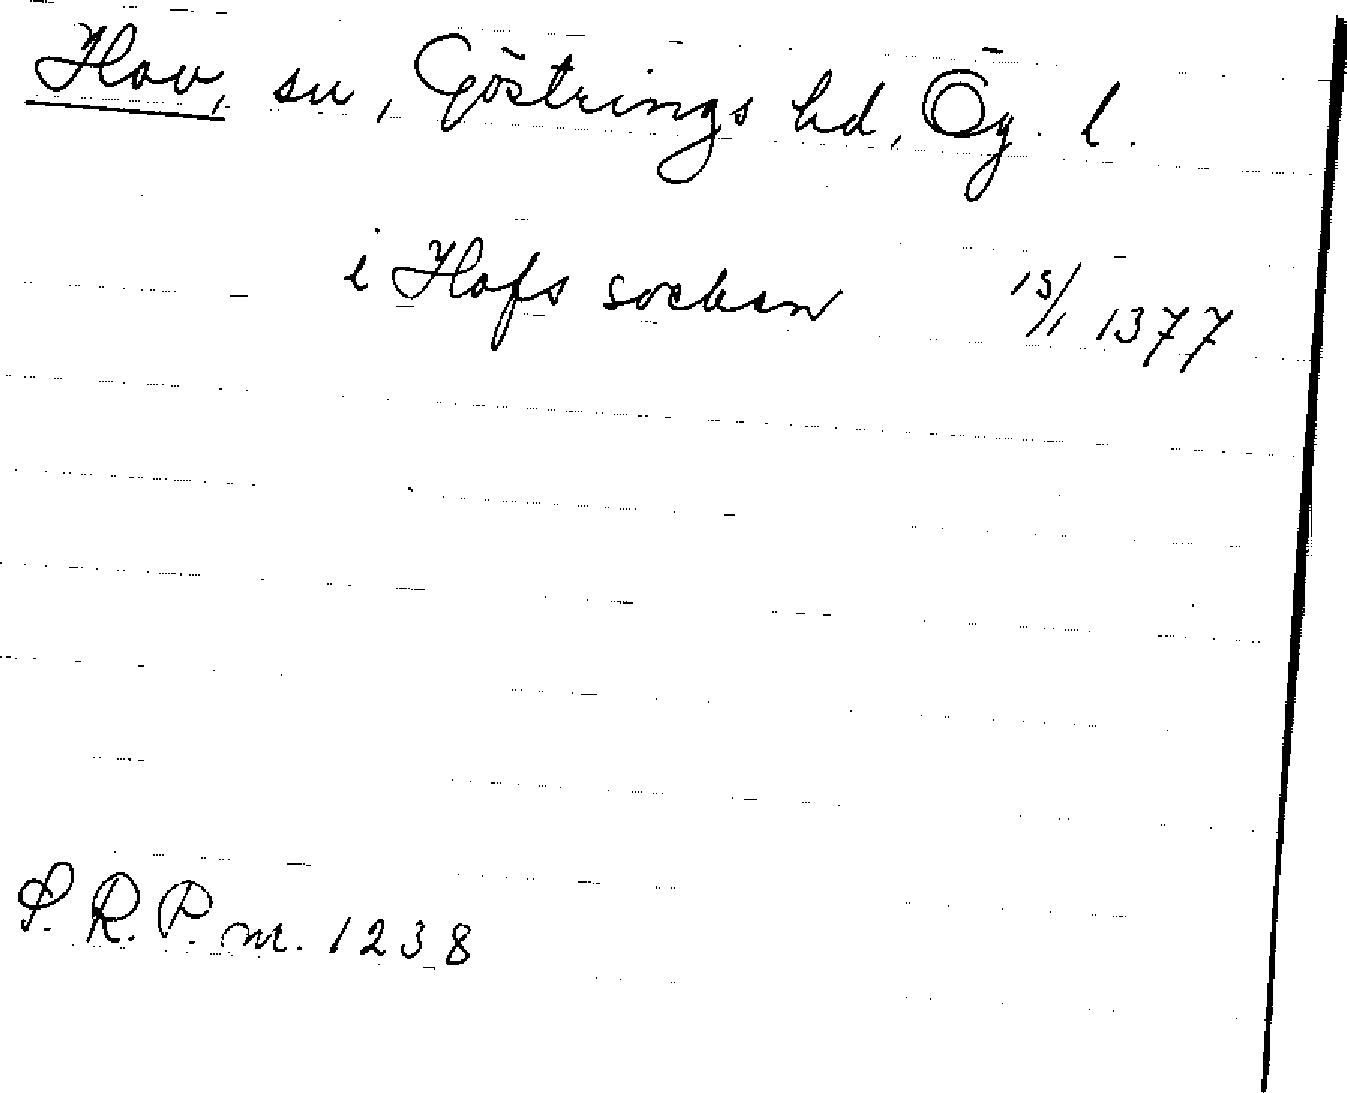 Hov, sn, Göstrings hd, Ög. l.
i Hofs sockn 15/1 1377
S. R. P. nr. 1238